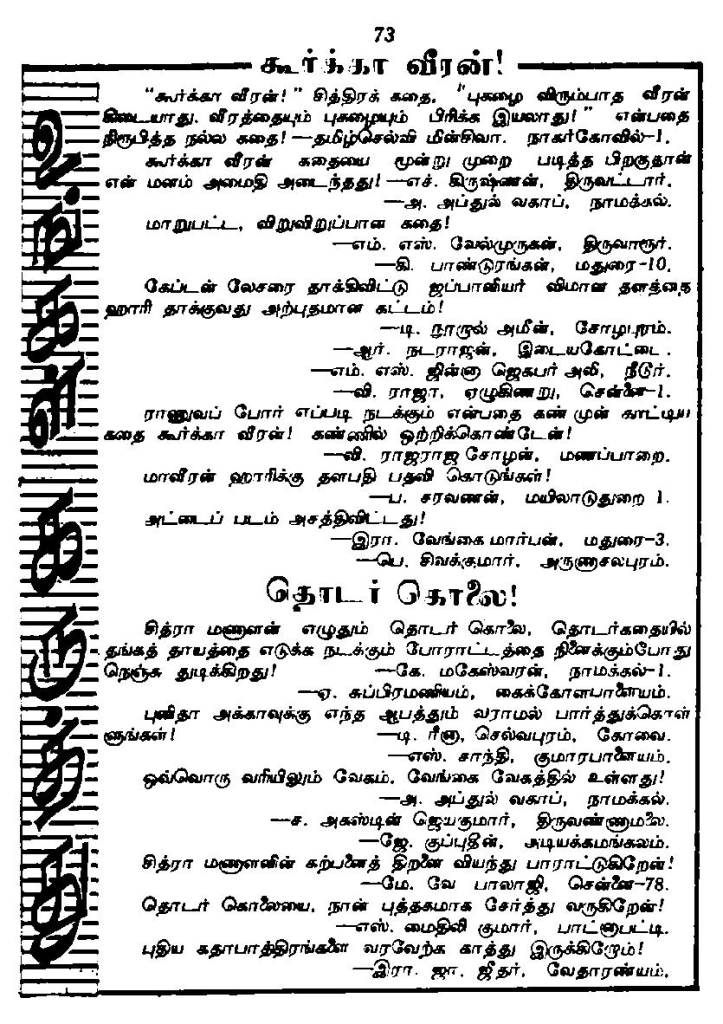 73
கூர்க்கா வீரன்!
"கூர்க்கா வீரன்!" சித்திரக் கதை, "புகழை விரும்பாத வீரன்
கிடையாது. வீரத்தையும் புகழையும் பிரிக்க இயலாது!" என்பதை
நிரூபித்த நல்ல கதை! —தமிழ்செல்வி மீன்சிவா. நாகர்கோவில்-1.
கூர்க்கா வீரன் கதையை மூன்று முறை படித்த பிறகுதான்
என் மனம் அமைதி அடைந்தது! —எச். கிருஷ்ணன், திருவட்டார்.
—அ. அப்துல் வகாப், நாமக்கல்.
மாறுபட்ட, விறுவிறுப்பான கதை!
—எம். எஸ். வேல்முருகன், திருவாரூர்.
—கி. பாண்டுரங்கன், மதுரை-10.
கேப்டன் லேசரை தாக்கிவிட்டு ஜப்பானியர் விமான தளத்தை
ஹாரி தாக்குவது அற்புதமான கட்டம்!
—டி. நூருல் அமீன், சோழபுரம்.
—ஆர். நடராஜன், இடையகோட்டை.
—எம். எஸ். ஜின்னா ஜெகபர் அலி, நீடூர்.
—வி. ராஜா, ஏழுகிணறு, சென்னை-1.
ராணுவப் போர் எப்படி நடக்கும் என்பதை கண் முன் காட்டிய
கதை கூர்க்கா வீரன்! கண்ணில் ஒற்றிக்கொண்டேன்!
—வி. ராஜராஜ சோழன், மணப்பாறை.
மாவீரன் ஹாரிக்கு தளபதி பதவி கொடுங்கள்!
—ப. சரவணன், மயிலாடுதுறை 1.
அட்டைப் படம் அசத்திவிட்டது!
—இரா. வேங்கை மார்பன், மதுரை-3.
—பெ. சிவக்குமார், அருணாசலபுரம்.
தொடர் கொலை!
சித்ரா மணாளன் எழுதும் தொடர் கொலை, தொடர்கதையில்
தங்கத் தாயத்தை எடுக்க நடக்கும் போராட்டத்தை நினைக்கும்போது
நெஞ்சு துடிக்கிறது! —கே. மகேஸ்வரன், நாமக்கல்-1.
—ஏ. சுப்பிரமணியம், கைக்கோளபாளையம்.
புனிதா அக்காவுக்கு எந்த ஆபத்தும் வராமல் பார்த்துக்கொள்
ளுங்கள்! —டி. ரீனா, செல்வபுரம், கோவை.
—எஸ். சாந்தி, குமாரபாளையம்.
ஒவ்வொரு வரியிலும் வேகம். வேங்கை வேகத்தில் உள்ளது!
—அ. அப்துல் வகாப், நாமக்கல்.
—ச. அகஸ்டின் ஜெயகுமார், திருவண்ணாமலை.
—ஜே. குப்புதீன், அடியக்கமங்கலம்.
சித்ரா மணாளனின் கற்பனைத் திறனை வியந்து பாராட்டுகிறேன்!
—மே. வே பாலாஜி, சென்னை-78.
தொடர் கொலையை, நான் புத்தகமாக சேர்த்து வருகிறேன்!
—எஸ். மைதிலி குமார், பாட்னாபட்டி.
புதிய கதாபாத்திரங்களை வரவேற்க காத்து இருக்கிறோம்!
—இரா. ஜா. ஜீதர், வேதாரண்யம்.